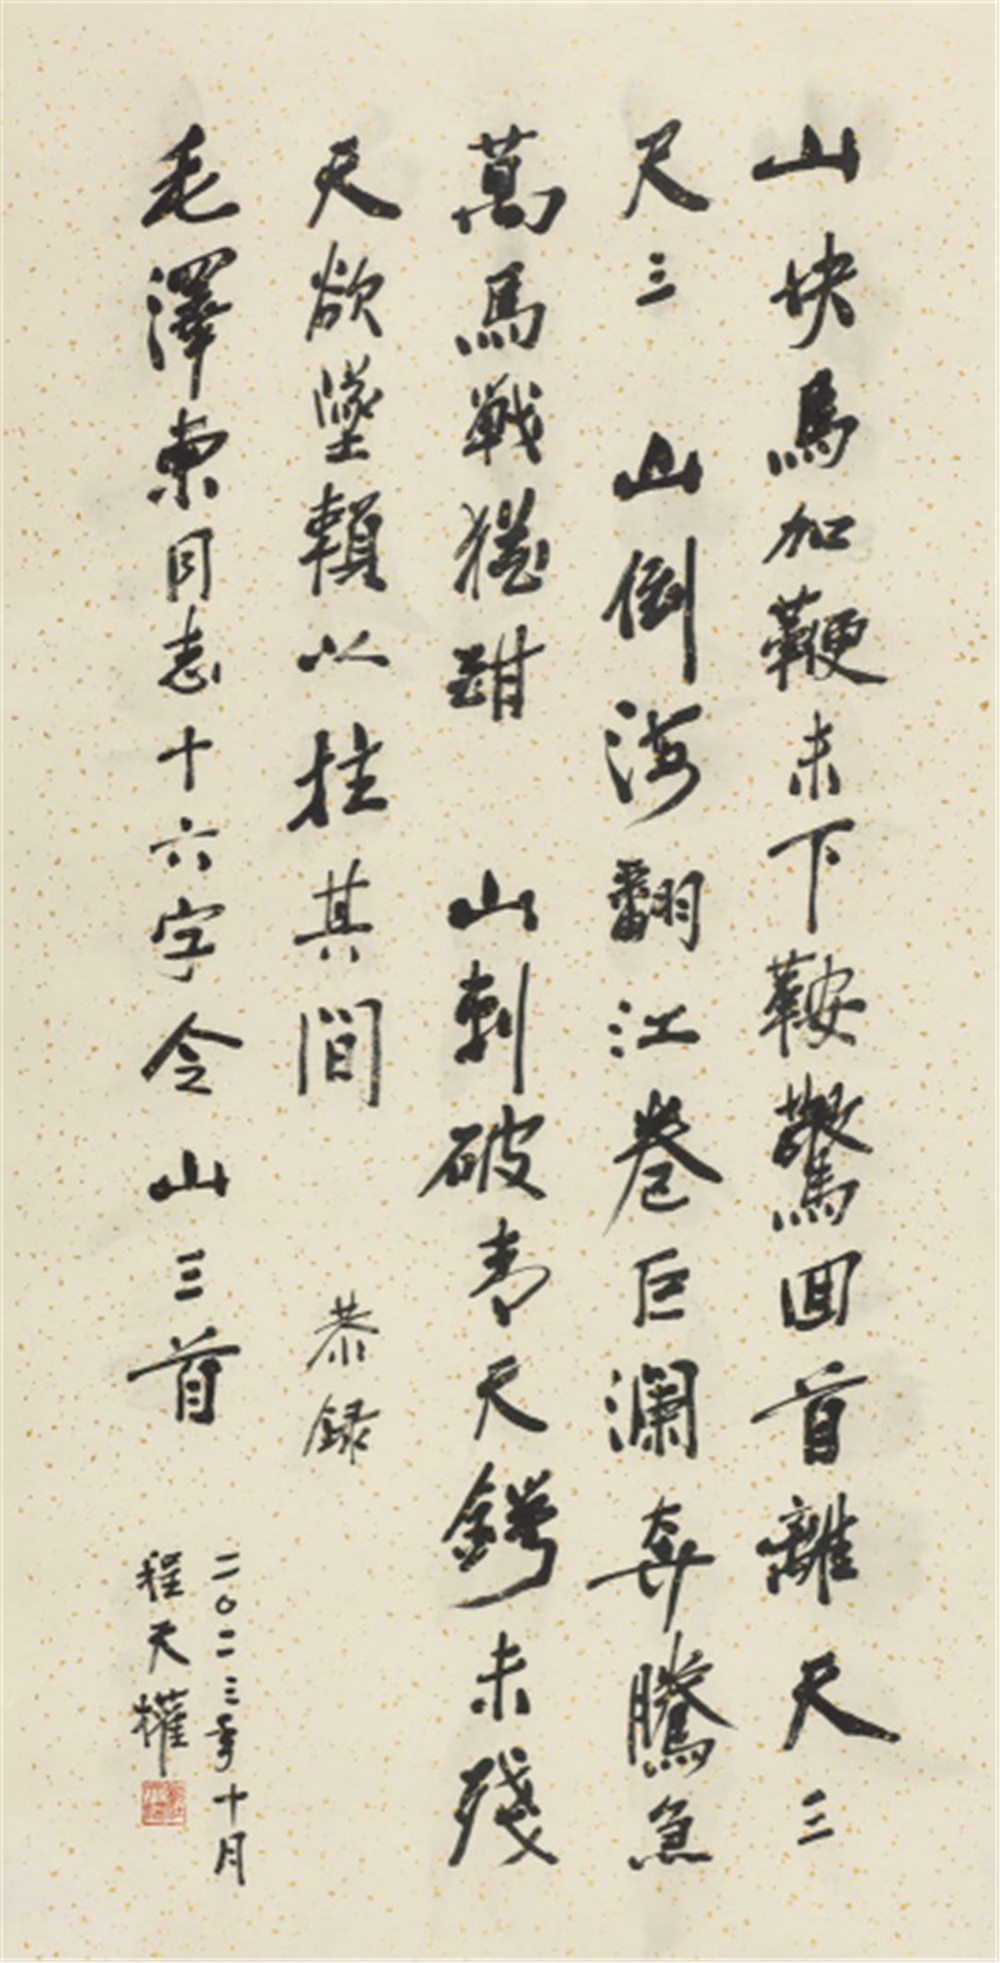 山快馬加鞭未下鞍驚回首離天三
尺三 山倒海翻江卷巨瀾奔騰急
萬馬戰猶酣 山刺破青天鍔未殘
天欲墜賴以拄其間 恭録
毛澤東同志十六字令山三首
二〇二三年十月
程天權